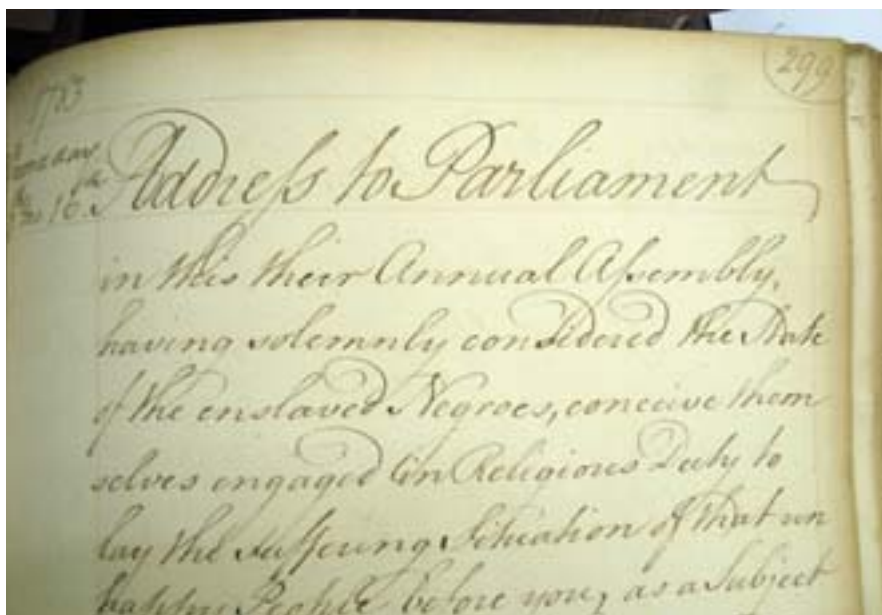 299
1783
16.th
Address to Parliament
in this their Annual Assembly,
having solemnly considered the State
of the enslaved Negroes, conceive them
selves engaged in Religious Duty to
lay the suffering Situation of that un
happy People before you, as a Subject